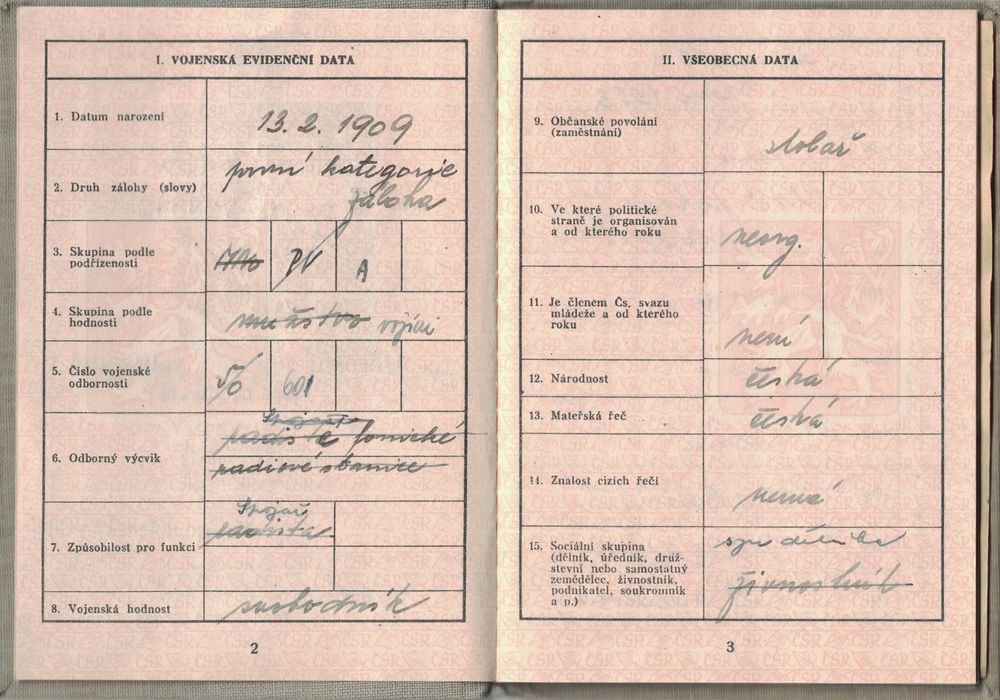 I. VOJENSKÁ EVIDENČNÍ DATA
1. Datum narození
13. 2. 1909
2. Druh zálohy (slovy)
první kategorie
záloha
3. Skupina podle
podřízenosti
PV
A
4. Skupina podle
hodnosti
mužstvo vojíni
5. Číslo vojenské
odbornosti
50
601
6. Odborný výcvik
fonické
radiové stanice
7. Způsobilost pro funkci
Strojař
radista
8. Vojenská hodnost
svobodník
2
II. VŠEOBECNÁ DATA
9. Občanské povolání
(zaměstnání)
stolař
10. Ve které politické
straně je organisován
a od kterého roku
neorg.
11. Je členem Čs. svazu
mládeže a od kterého
roku
není
12. Národnost
česká
13. Mateřská řeč
česká
14. Znalost cizích řečí
nemá
15. Sociální skupina
(dělník, úředník, druž-
stevní nebo samostatný
zemědělec, živnostník,
podnikatel, soukromník
a p.)
syn dělníka
živnostník
3